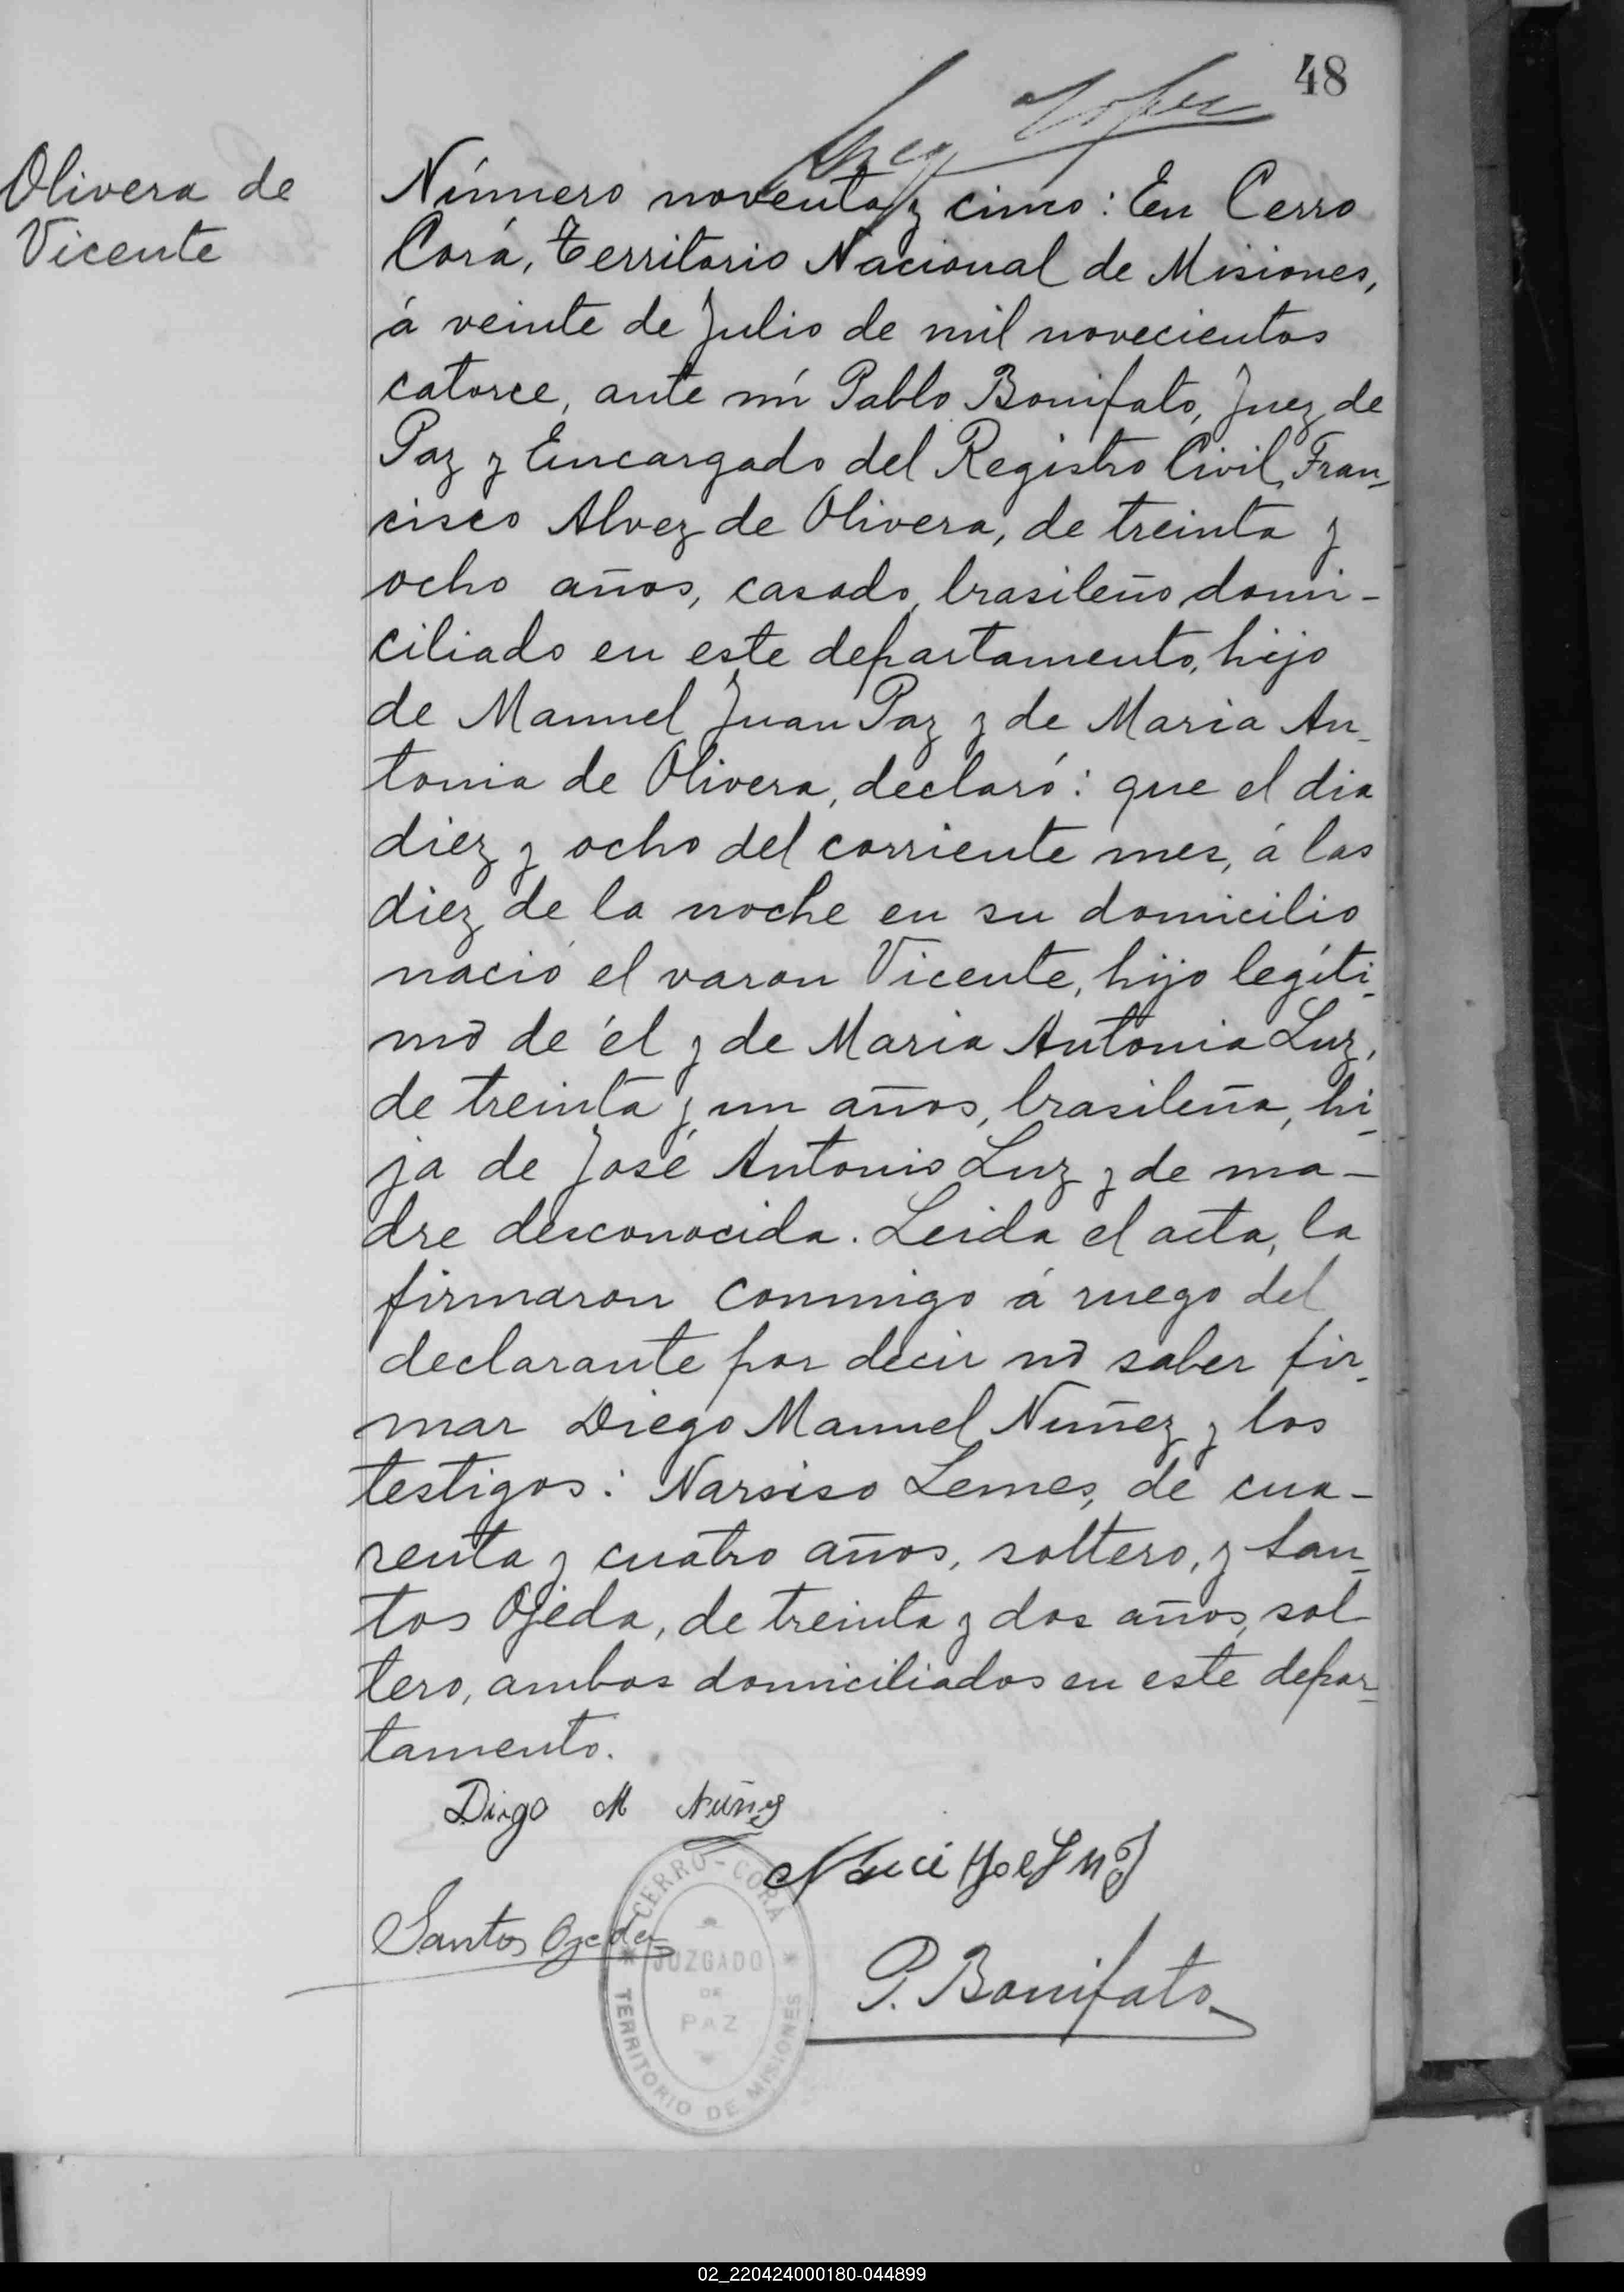 48
Olivera de
Vicente
Número noventa y cinco: En Cerro
Corá, Territorio Nacional de Misiones,
á veinte de Julio de mil novecientos
catorce, ante mí Pablo Bonifato, Juez de
Paz y Encargado del Registro Civil, Fran-
cisco Alvez de Olivera, de treinta y
ocho años, casado, brasileño domi-
ciliado en este departamento, hijo
de Manuel Juan Paz y de Maria An-
tonia de Olivera, declaró: que el dia
diez y ocho del corriente mes, á las
diez de la noche en su domicilio
nació el varon Vicente, hijo legíti-
mo de él y de Maria Antonia Luz,
de treinta y un años, brasileña, hi-
ja de José Antonio Luz y de ma-
dre desconocida. Leida el acta, la
firmaron conmigo á ruego del
declarante por decir no saber fir-
mar Diego Manuel Nuñez y los
testigos: Narsiso Lemes, de cua-
renta y cuatro años, soltero, y San-
tos Ojeda, de treinta y dos años, sol-
tero, ambos domiciliados en este depar-
tamento.
Diego M Nuñez
Santos Ojeda
P. Bonifato
CERRO-CORÁ
JUZGADO
DE
PAZ
TERRITORIO DE MISIONES
02_220424000180-044899